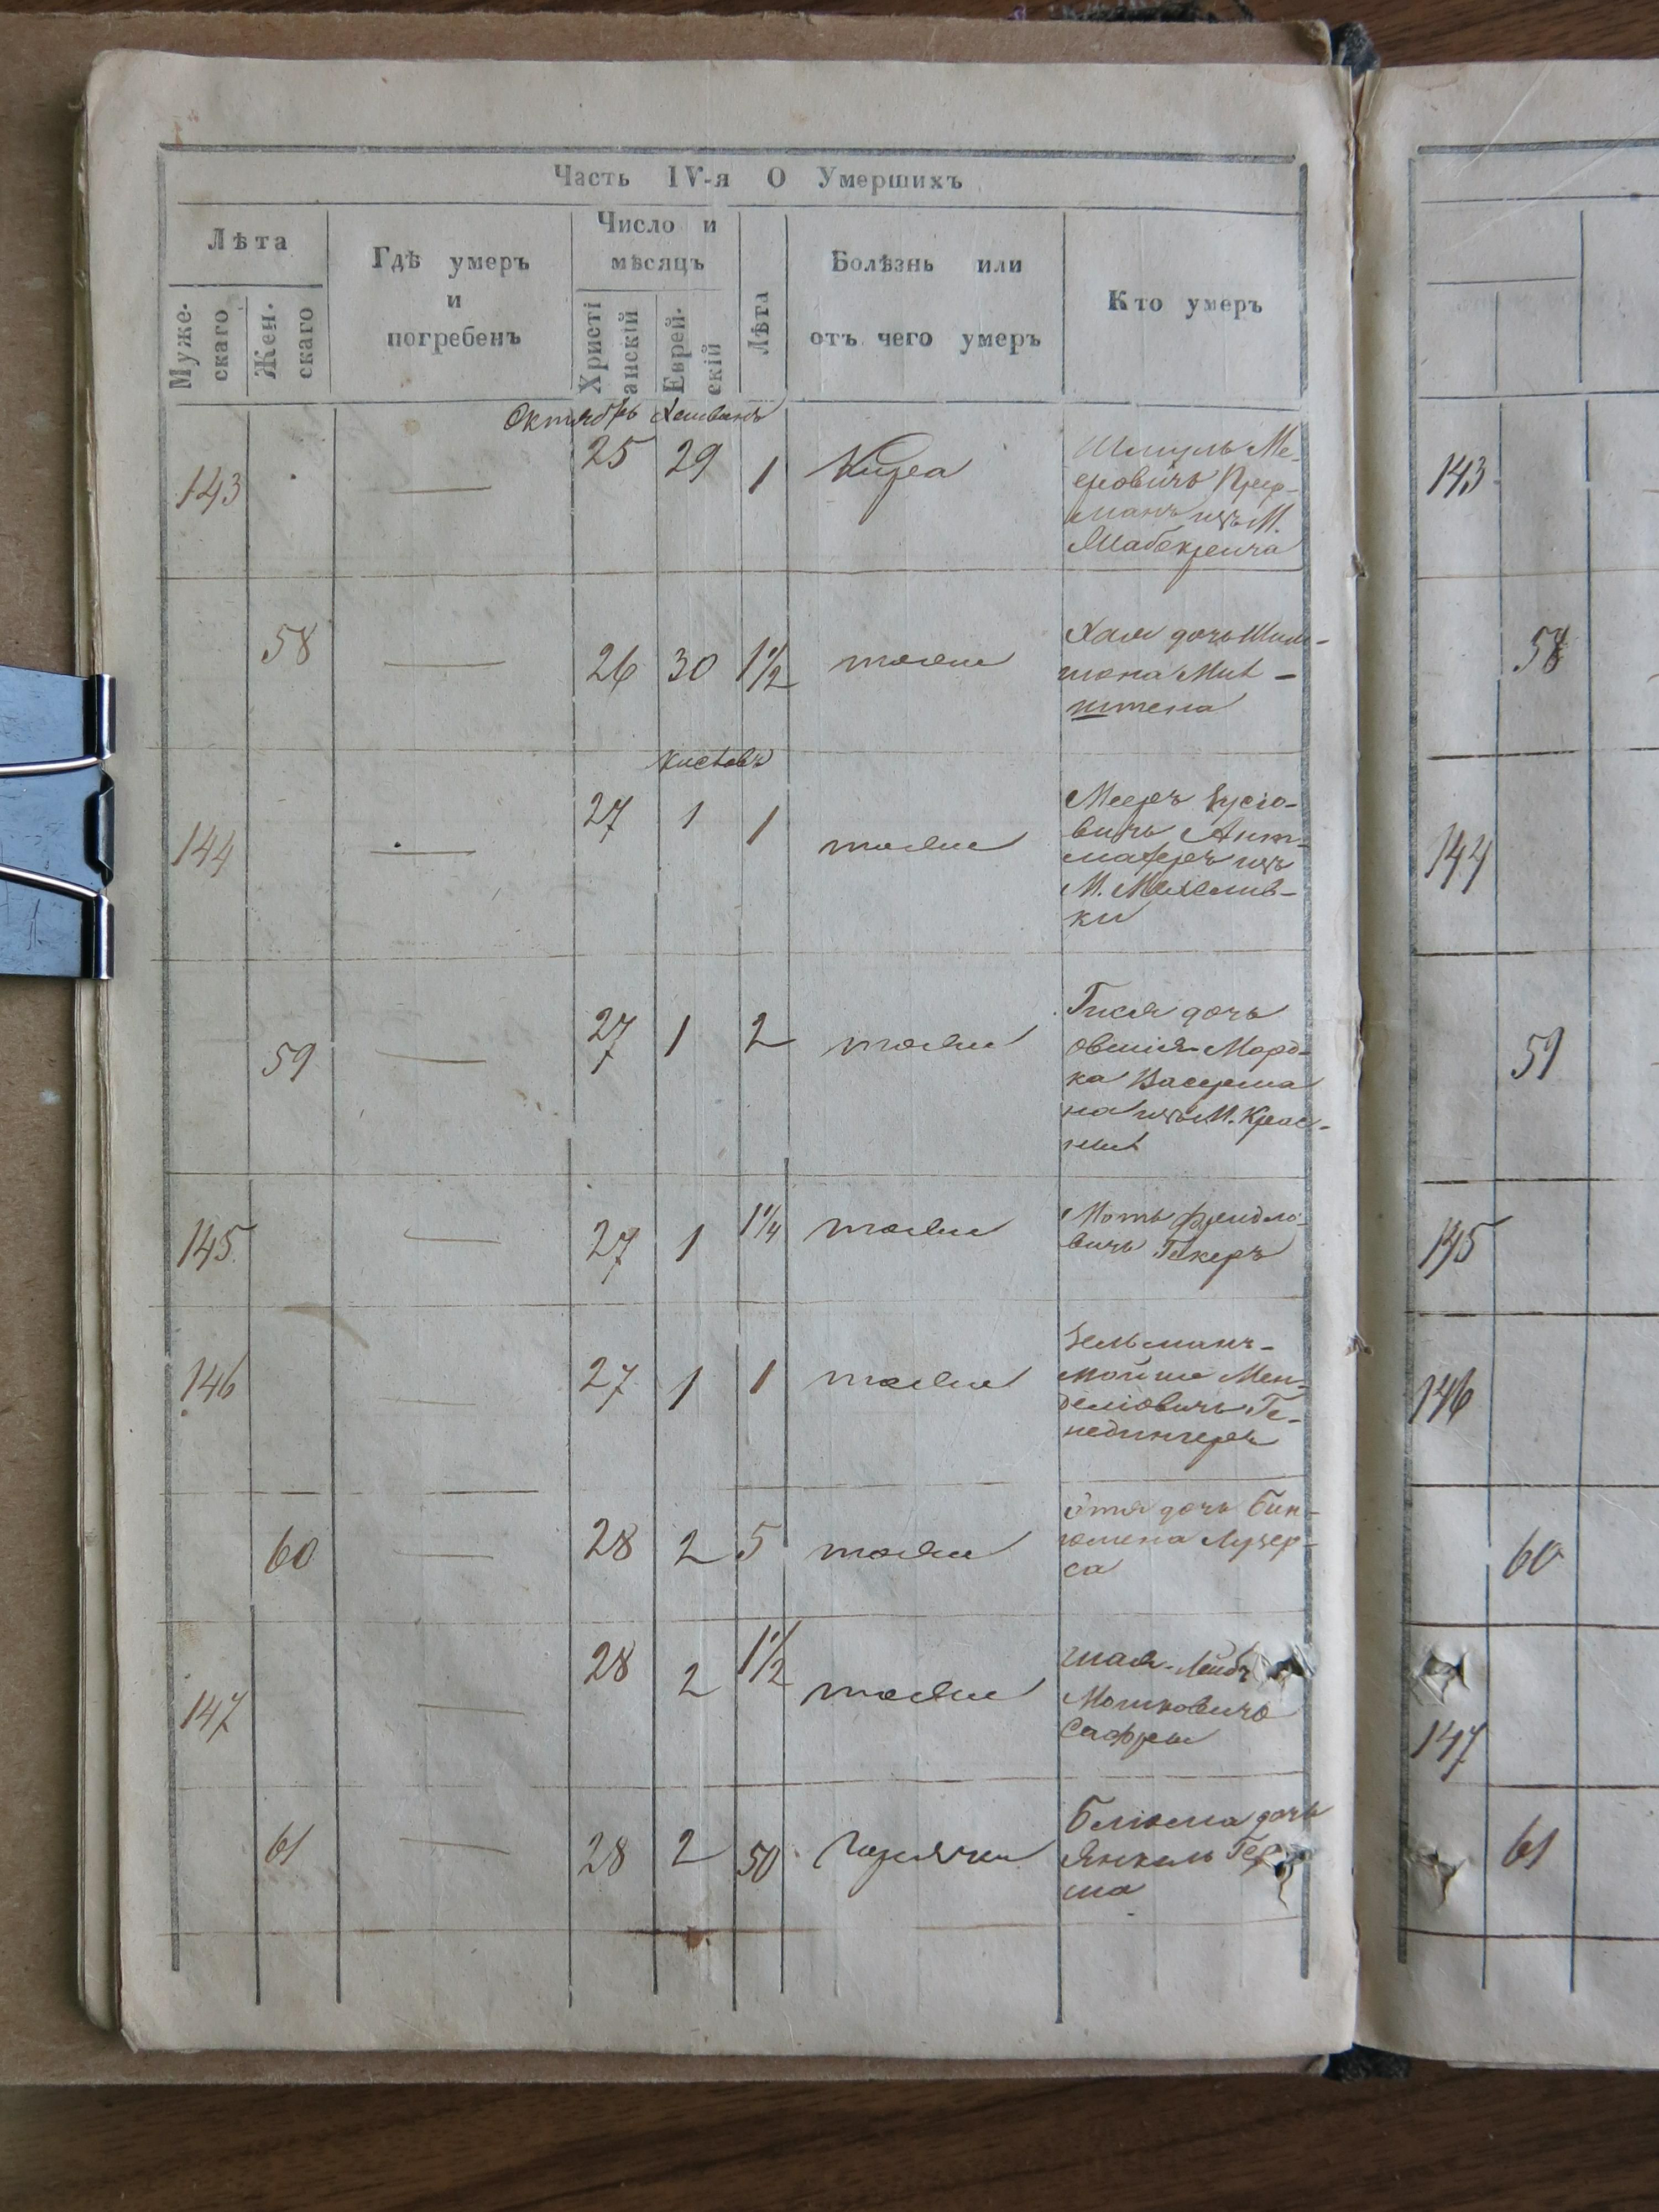 Часть IV-я О Умершихъ
Лѣта
Муже-
скаго
Жен-
скаго
Гдѣ умеръ
и
погребенъ
Число и
мѣсяцъ
Христі
анскій
Еврей-
скій
Лѣта
Болѣзнь или
отъ чего умеръ
Кто умеръ
Октябрь Хешванъ
143 25 29 1
Шмуль Ме-
еровичъ
манъ изъ М.
58 26 30 1 1/2 тоже
Хая дочь Шим-
шона
штена
Кислевъ
144 27 1 1 тоже
Мееръ Зусіо-
вичъ
изъ
М. Мясков-
ки
59 27 1 2 тоже
Гися дочь
Овшія-Морд-
ка Васерма
на изъ М. Крас-
наго
145 27 1 1 1/4 тоже
Моть
вичъ Гекеръ
146 27 1 1 тоже
Зельманъ-
Мойше Мен-
деліовичъ Ге-
недингеръ
60 28 2 5 тоже
Этя дочь Бин-
юмена Лузер-
са
147 28 2 1 1/2 тоже
Шая-Лейбъ
Мошковичъ
61 28 2 50 Горячки
Блюма дочь
Янкель
ма
143
58
144
59
145
146
60
147
61